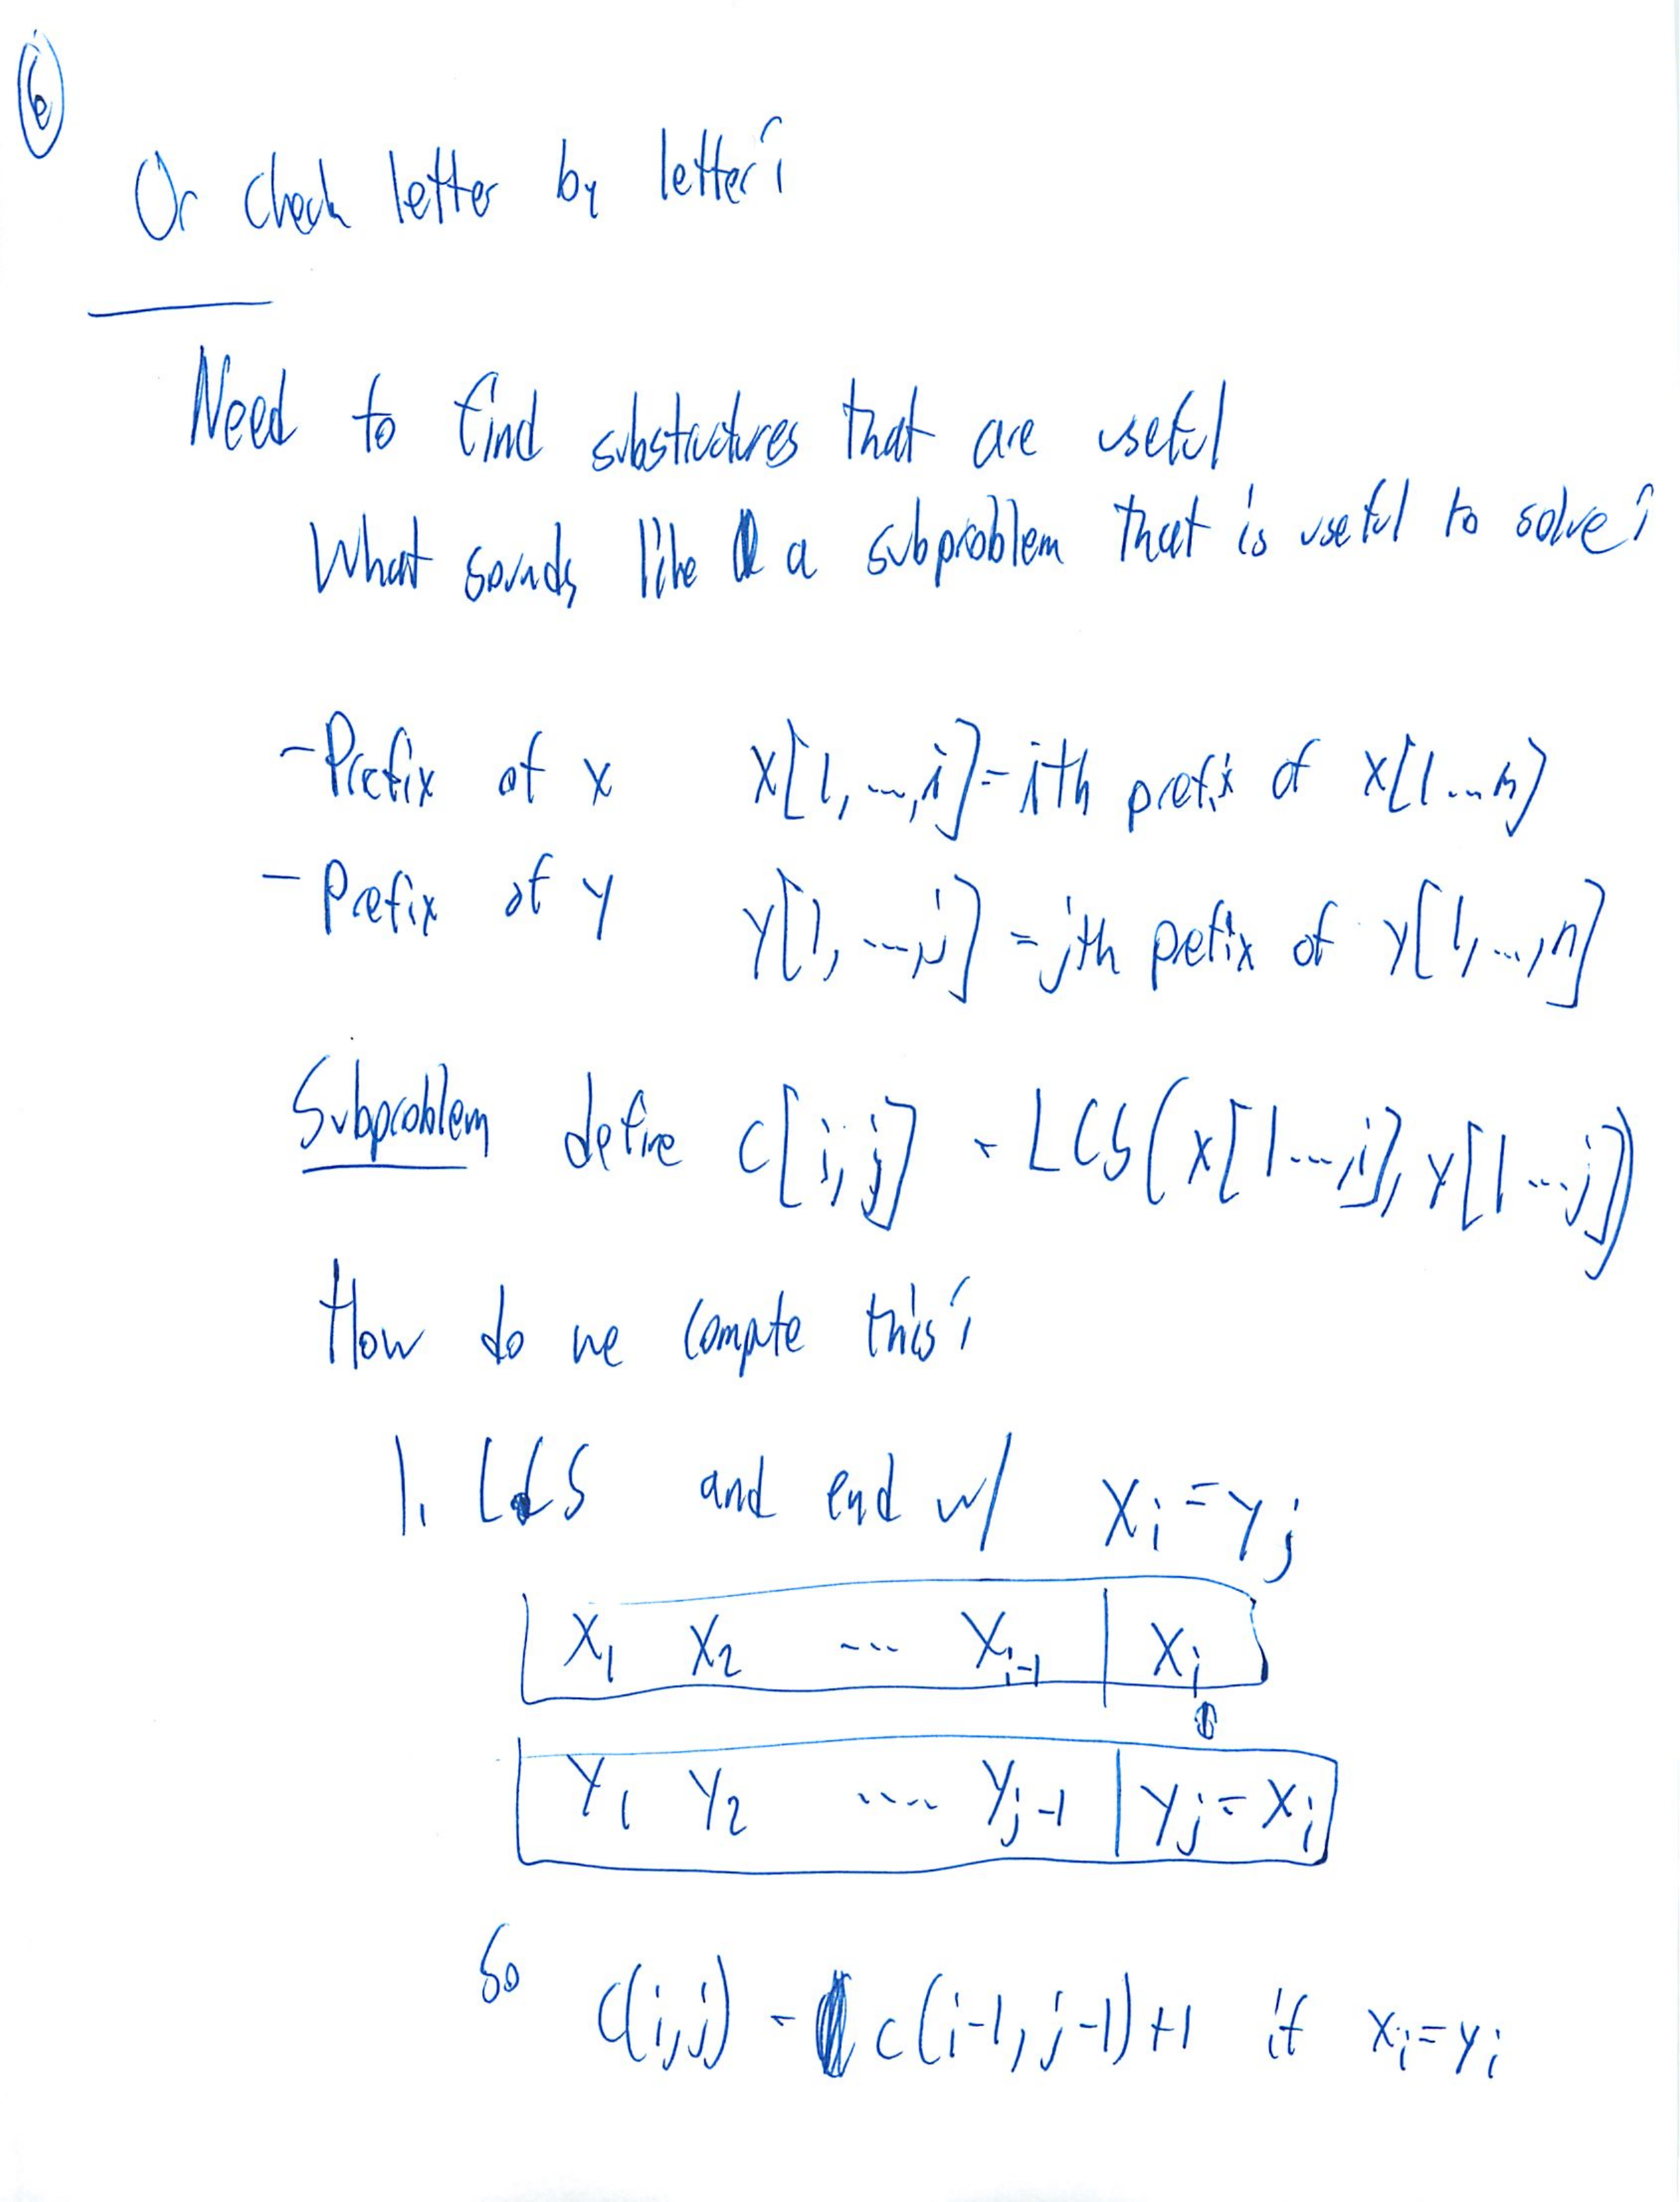 6
Or check letter by letter?
Need to find substructures that are useful
What sounds like a subproblem that is useful to solve?
- Prefix of x x[1, ..., i] = ith prefix of x[1...n]
- Prefix of y y[1, ..., j] = jth prefix of y[1, ..., n]
Subproblem define c[i,j] = LCS(x[1...,i], y[1...j])
How do we compute this?
1. LCS and end w/ xi = yj
x1 x2 ... xi-1 xi
y1 y2 .... yj-1 yj = xi
So c(i,j) = c(i-1, j-1)+1 if xi = yi